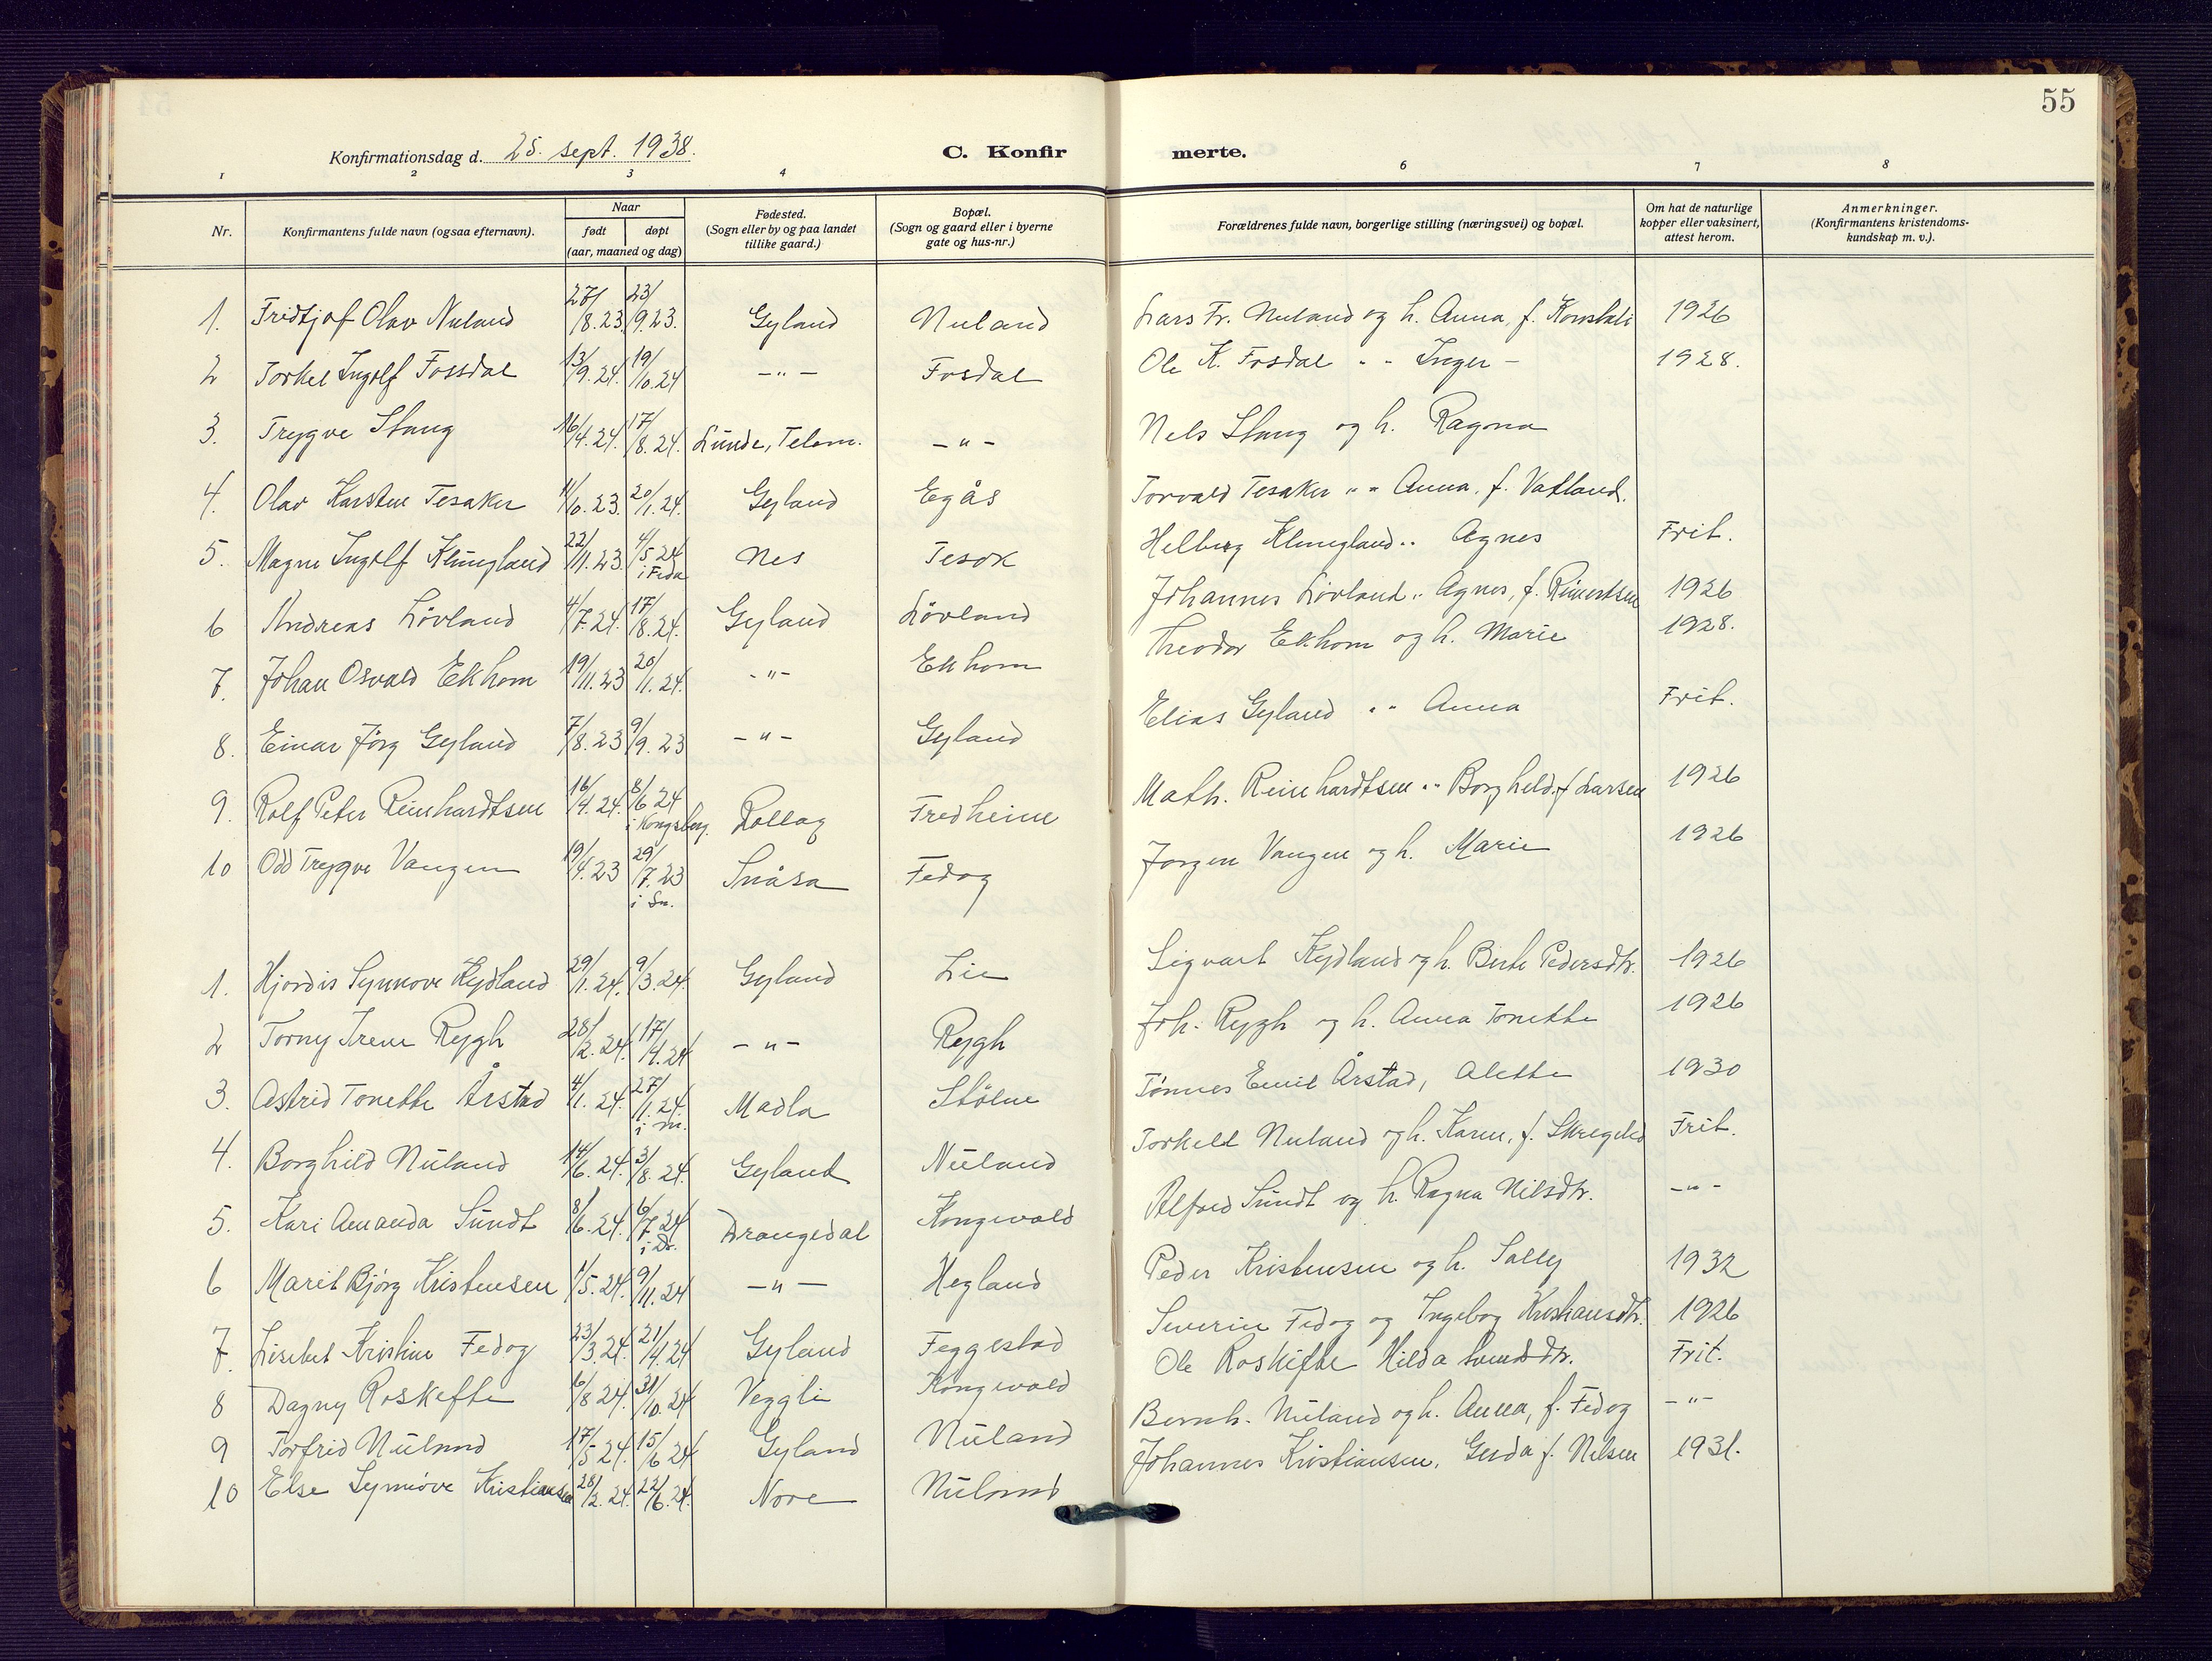 55
Konfirmationsdag d. 25. sept. 1938.
C. Konfirmerte.
1 2 3 4 6 7 8
Nr. | Konfirmantens fulde navn (ogsaa efternavn). | Naar født døpt (aar, maaned og dag) | Fødested. (Sogn eller by og paa landet tillike gaard.) | Bopæl. (Sogn og gaard eller i byerne gate og hus-nr.) | Forældrenes fulde navn, borgerlige stilling (næringsvei) og bopæl. | Om hat de naturlige kopper eller vaksinert, attest herom. | Anmerkninger. (Konfirmantens kristendomskundskap m. v.).
1. Fridtjof Olav Nuland 27/8.23 23/9.23. Gyland Nuland Lars Fr. Nuland og h. Anna, f. 1926
2 Torkel Ingolf Fossdal 13/9.24. 19/10.24 -"- Fosdal Ole K. Fosdal " " Inger - 1928.
3. Trygve Stang 16/4.24. 17/8.24. Lunde, Telem. -"- Nels Stang og h. Ragna
4. Olav Karsten Tesaker 11/10.23. 20/1.24. Gyland Egås Torvald Tesaker " " Anna, f. Vatland.
5. Magne Ingolf Klungland 22/11.23. 4/5.24 i Feda Nes Tesok Helberg Klungland " Agnes Frit.
6 Andreas Løvland 4/7.24. 17/8.24. Gyland Løvland Johannes Løvland " Agnes, f. Reinertsen 1926
7. Johan Osvald Ekhom 19/11.23 20/1.24. -"- Ekhom Theodor Ekhom og h. Marie 1928.
8. Einar Jørg Gyland 7/8.23 9/9.23 -"- Gyland Elias Gyland " " Anna Frit.
9. Rolf Peter Reinhardtsen 16/4.24. 8/6 24 i Kongsberg. Rollag Fredheim Math. Reinhardtsen " " Borghild f. Larsen 1926
10 Odd Trygve Vangen 19/4.23 29/7.23 i Sn. Snåsa Fedog Jørgen Vangen og h. Marie 1926
1. Hjørdis Synnøve Kydland 29/1.24. 9/3.24. Gyland Lie Sigvart Kydland og h. Berte Pedersdtr. 1926
2 Torny Irene Rygh 28/2.24. 17/4.24 -"- Rygh Joh. Rygh og h. Anna Tonette 1926
3. Astrid Tonette Årstad 4/1.24. 27/1.24. i M. Madla Stølen Tønnes Emil Årstad, Alette 1930
4. Borghild Nuland 14/6.24. 3/8.24. Gyland Nuland Torkell Nuland og h. Karen, f. Skregelid Frit.
5. Kari Amanda Sundt 8/6.24. 6/7.24 i Dr. Drangedal Kongevold Alfred Sundt og h. Ragna Nilsdtr. -"-
6 Marit Bjørg Kristensen 1/5.24. 9/11.24 -"- Hegland Peder Kristensen og h. Sally 1932
7. Lisebet Kristine Fedog 23/3.24. 21/4.24 Gyland Feggestad Severin Fedog og Ingeborg Kristiansdtr. 1926
8 Dagny Roskefte 6/8 24. 31/10.24 Veggli Kongevold Ole Roskifte Hilda Svendsdtr. Frit.
9 Torfrid Nuland 17/5 24. 15/6 24 Gyland Nuland Bernh. Nuland og h. Anna, f. Fedog -"-
10 Else Synnøve Kristiansen 28/2.24. 22/6.24. Nore Nuland Johannes Kristiansen, Gerda f. Nelsen 1931.